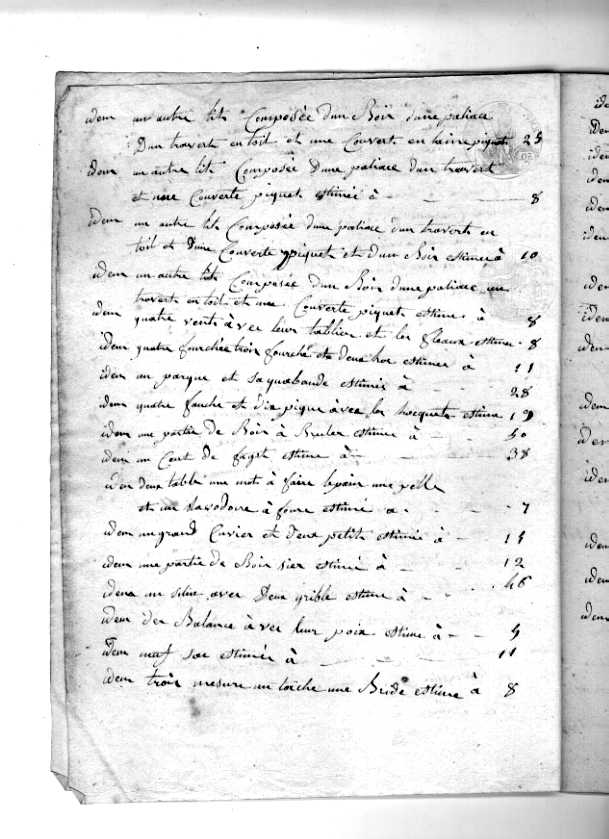 idem un autre lit Composée dun Boir dune paliace
Dun traverts en toit et une Couvert en laine piquet 25
idem un autre lit Composée Dune paliace dun travert
et une Couverte piquet estimée à 8
idem un autre lit Composée dune paliace dun traverts en
toit et Dune Couverte piquet et dun Boir estimée à 10
idem un autre lit Composée dun Boir dune paliace un
traverts en toit et une Couverte piquet estimé à 8
idem quatre vents àvec leur tablier et les fleaux estimé 8
idem quatre fourchée trois fourché et deux hoe estimée à 11
idem un parque et sa estimée à 28
idem quatre fauche et dix pique àvec les hocquets estimé 19
idem une partie de Boir à Bruler estimé à 50
idem un Cent de fagot estimé à 38
idem deux table une mets à faire lepain une pelle
et un à foure estimé à 7
idem un grand Cuvier et deux petits estimée à 15
idem une partie de Boir sier estimé à 12
idem un avec Deux grible estimé à 46
idem des Balance àvec leur poix estimé à 5
idem neuf sac estimée à 11
idem trois mesure un une Bride estimé à 8